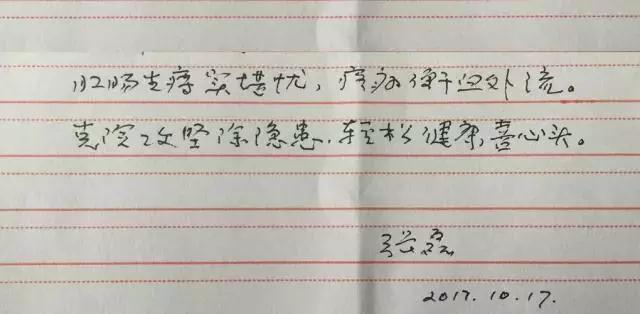 肛肠生痔实堪忧，疼痛便干血外流。
克院攻坚除隐患，轻松健康喜心头。
张磊
2017.10.17.